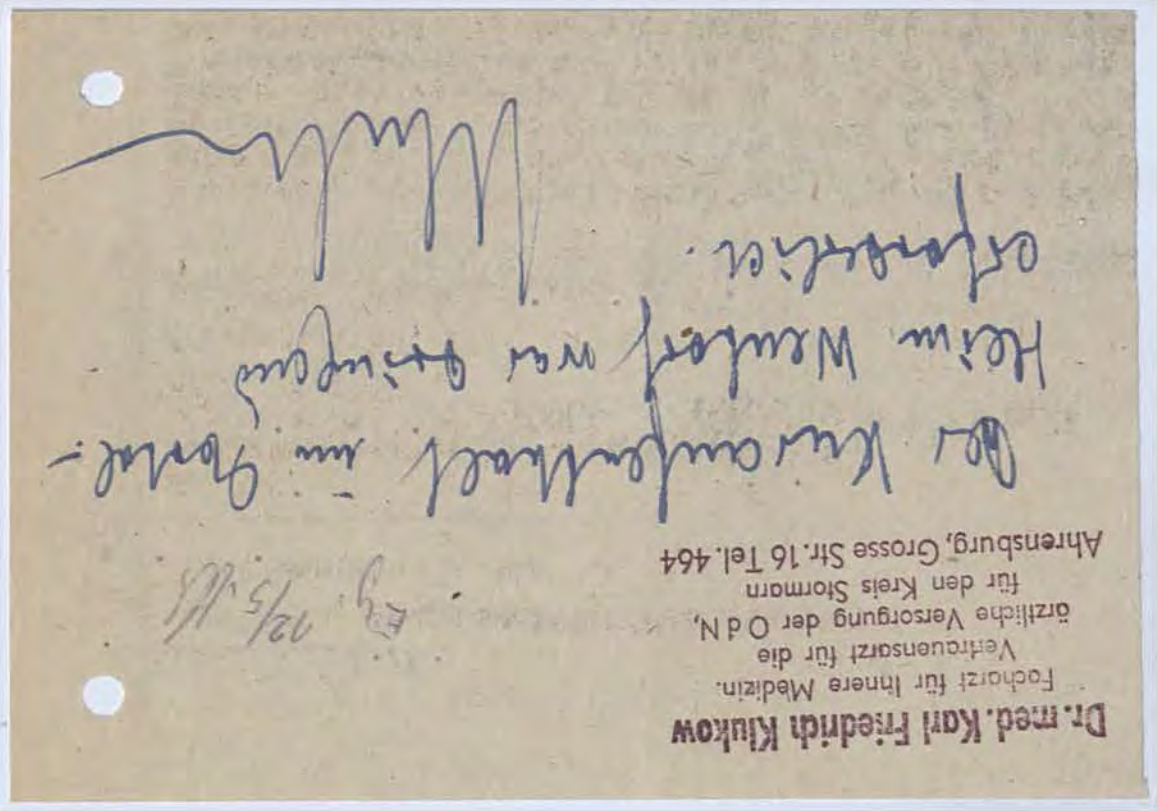 Dr. med. Karl Friedrich Klukow
Facharzt für Innere Medizin.
Vertrauensarzt für die
ärztliche Versorgung der O d N,
für den Kreis Stormarn
Ahrensburg, Grosse Str. 16 Tel. 464
Eg. 12/5.
Der Kuraufenthalt im Genesungs-
Heim Wentorf war dringend
erforderlich.